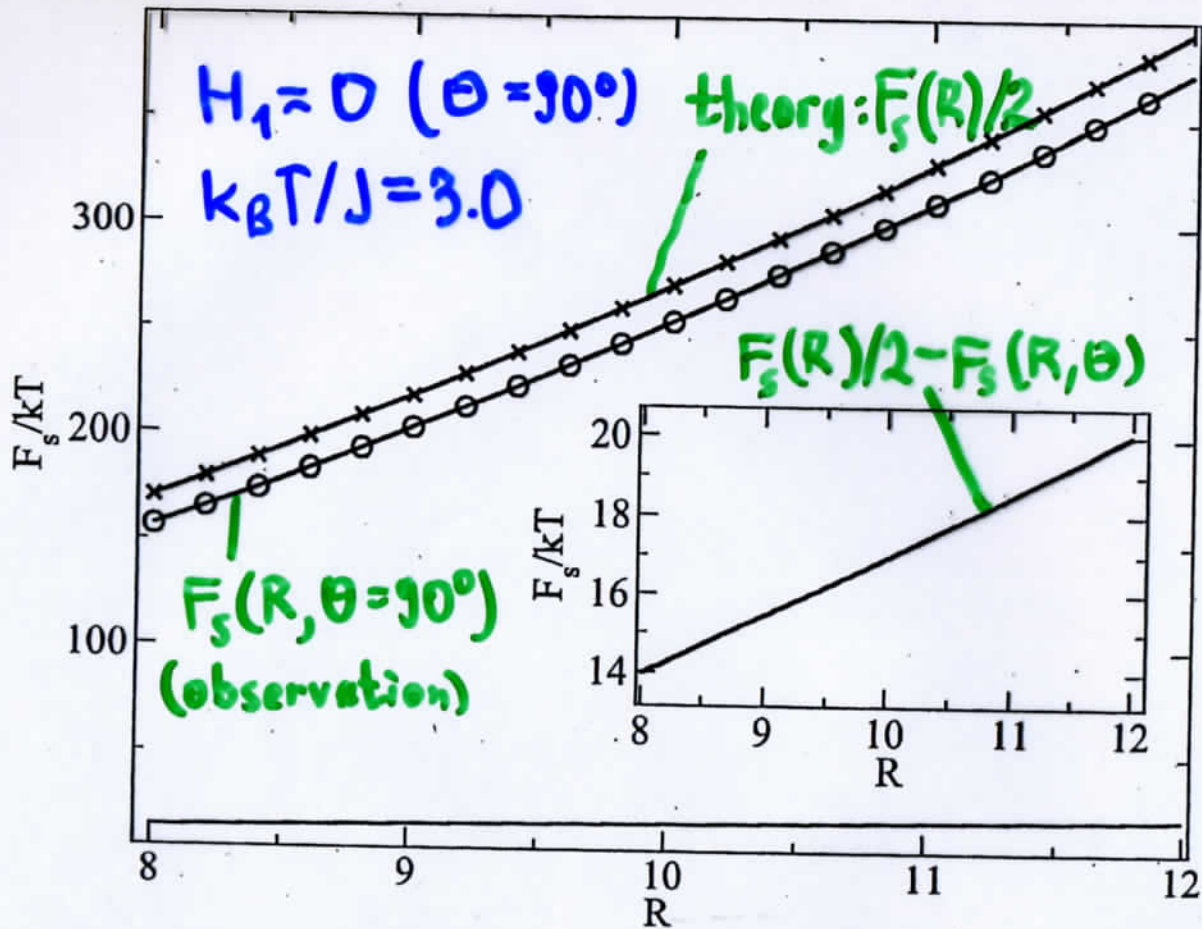 H₁ = 0 (θ = 90°)
k_BT/J = 3.0
theory: F_s(R)/2
F_s(R)/2 - F_s(R, θ)
F_s(R, θ = 90°)
(observation)
300
200
100
F_s/kT
8
9
10
11
12
R
20
18
16
14
F_s/kT
8
9
10
11
12
R